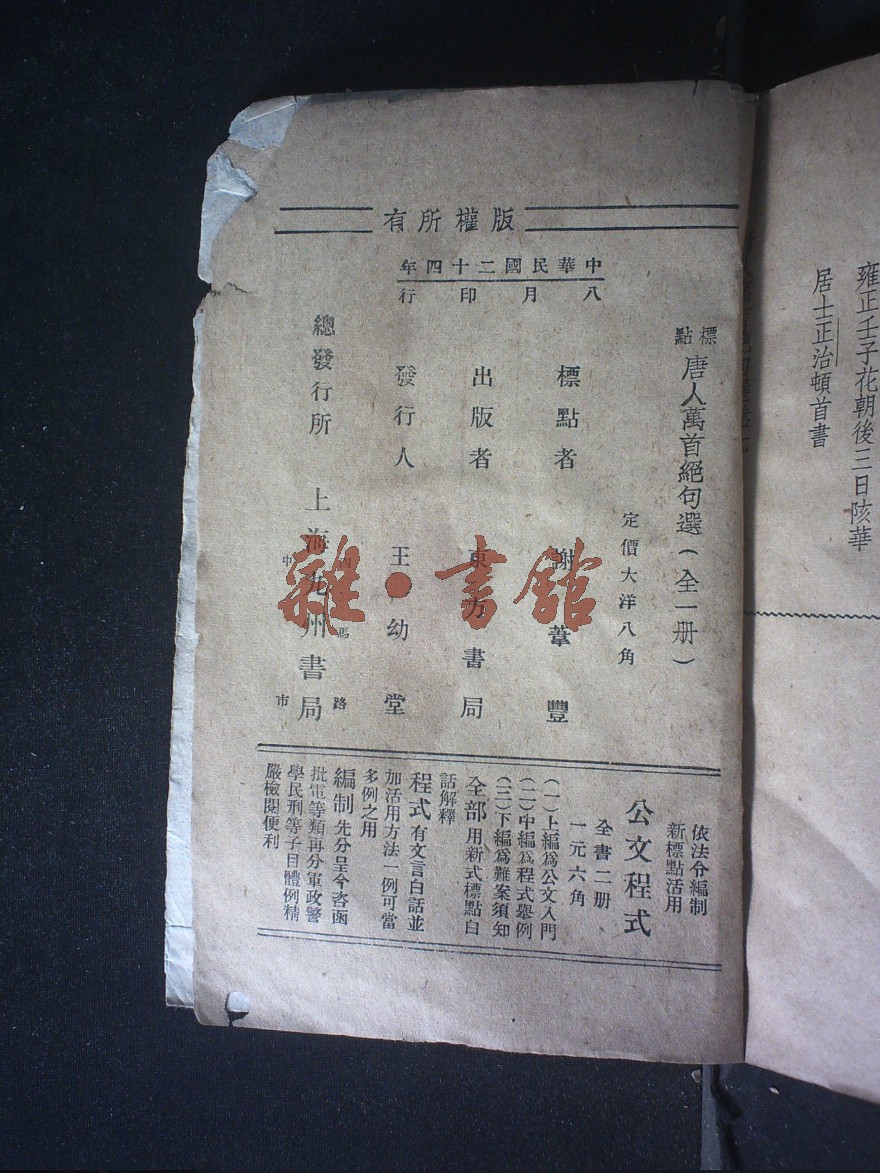 雍正壬子花朝後三日陔華
居士正治頓首書
版權所有
中華民國二十四年
八月印行
標點
唐人萬首絕句選(全一册)
定價大洋八角
標點者 謝葦豐
出版者 東方書局
發行人 王幼堂
總發行所 上海九州書局
中 市
馬路
雜·書館
依法令編制
新標點活用
公文程式
全書二册
一元六角
(一)上編爲公文入門
(二)中編爲程式舉例
(三)下編爲難案須知
全部用新式標點白
話解釋
程式有文言白話並
加活用方法一例可當
多例之用
編制先分呈令咨函
批電等類再分軍政警
學民刑等子目體例精
嚴檢閱便利